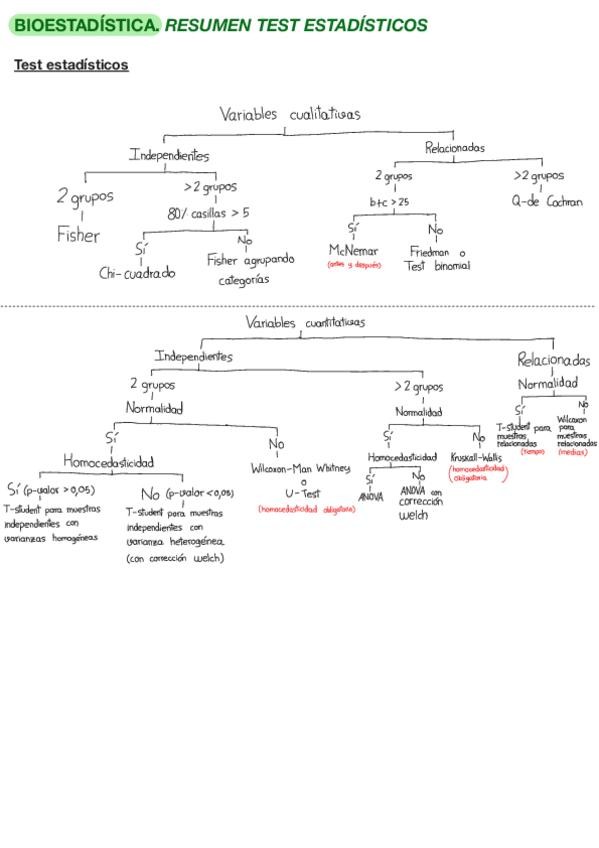 BIOESTADÍSTICA. RESUMEN TEST ESTADÍSTICOS
Test estadísticos
Variables cualitativas
Independientes
Relacionadas
2 grupos
>2 grupos
2 grupos
>2 grupos
80% casillas > 5
b+c >25
Q-de Cochran
Fisher
Sí
No
Sí
No
Chi-cuadrado
Fisher agrupando
categorías
McNemar
(antes y después)
Friedman o
Test binomial
Variables cuantitativas
Independientes
Relacionadas
2 grupos
>2 grupos
Normalidad
Normalidad
Normalidad
Sí
No
Sí
No
Sí
No
Homocedasticidad
Wilcoxon-Man Whitney
o
U-Test
(homocedasticidad obligatoria)
Homocedasticidad
Kruskall-Wallis
(homocedasticidad)
obligatoria
T-student para
muestras
relacionadas
(tiempo)
Wilcoxon
para
muestras
relacionadas
(medias)
Sí (p-valor >0,05)
No (p-valor <0,05)
Sí
No
T-student para muestras
independientes con
varianzas homogéneas
T-student para muestras
independientes con
varianza heterogénea
(con corrección welch)
ANOVA
ANOVA con
corrección
welch